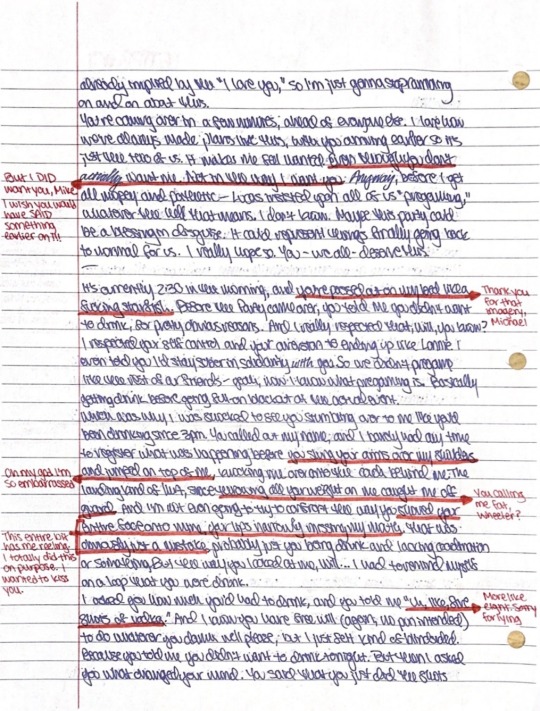 already implied by the "I love you," so I'm just gonna stop rambling
on and on about this.
You're coming over in a few minutes, ahead of everyone else. I love how
we've always made plans like this, with you arriving earlier so it's
just the two of us. It makes me feel wanted. Even though you don't
actually want me. Not in the way I want you. Anyway, before I get
all mopey and pathetic - Lucas insisted upon all of us "pregaming,"
whatever the hell that means. I don't know. Maybe this party could
be a blessing in disguise. It could represent things finally going back
to normal for us. I really hope so. You - we all - deserve this.
But I DID
want you, Mike
I wish you would
have SAID
something
earlier on?!!
It's currently 2:30 in the morning, and you're passed out on my bed like a
fucking starfish. Before the Party came over, you told me you didn't want
to drink, for pretty obvious reasons. And I really respected that, Will, you know?
I respected your self control and your aversion to ending up like Lonnie. I
even told you I'd stay sober in solidarity with you. So we didn't pregame
like the rest of our friends - yeah, now I know what pregaming is. Basically
getting drunk before going full-on blackout at the actual event.
Which was why I was shocked to see you stumbling over to me like you'd
been drinking since 3pm. You called out my name, and I barely had any time
to register what was happening before you slung your arms over my shoulders
and jumped on top of me, knocking me over onto the couch behind me. The
landing kind of hurt, since throwing all your weight on me caught me off
guard. And I'm not even going to try to comment on the way you shoved your
entire face onto mine, your lips narrowly missing my mouth. That was
obviously just a mistake, probably just you being drunk and lacking coordination
or something. But the way you looked at me, Will... I had to remind myself
on a loop that you were drunk.
I asked you how much you'd had to drink, and you told me "Uh, like five
shots of vodka." And I know you have free will (again, no pun intended)
to do whatever you damn well please, but I just felt kind of blindsided.
Because you told me you didn't want to drink tonight. But when I asked
you what changed your mind. You said that you just did the shots
Thank you
for that
imagery,
Michael
Oh my god I'm
so embarrassed
You calling
me fat,
Wheeler?
This entire bit
has me reeling.
I totally did this
on purpose. I
wanted to kiss
you.
More like
eight. Sorry
for lying